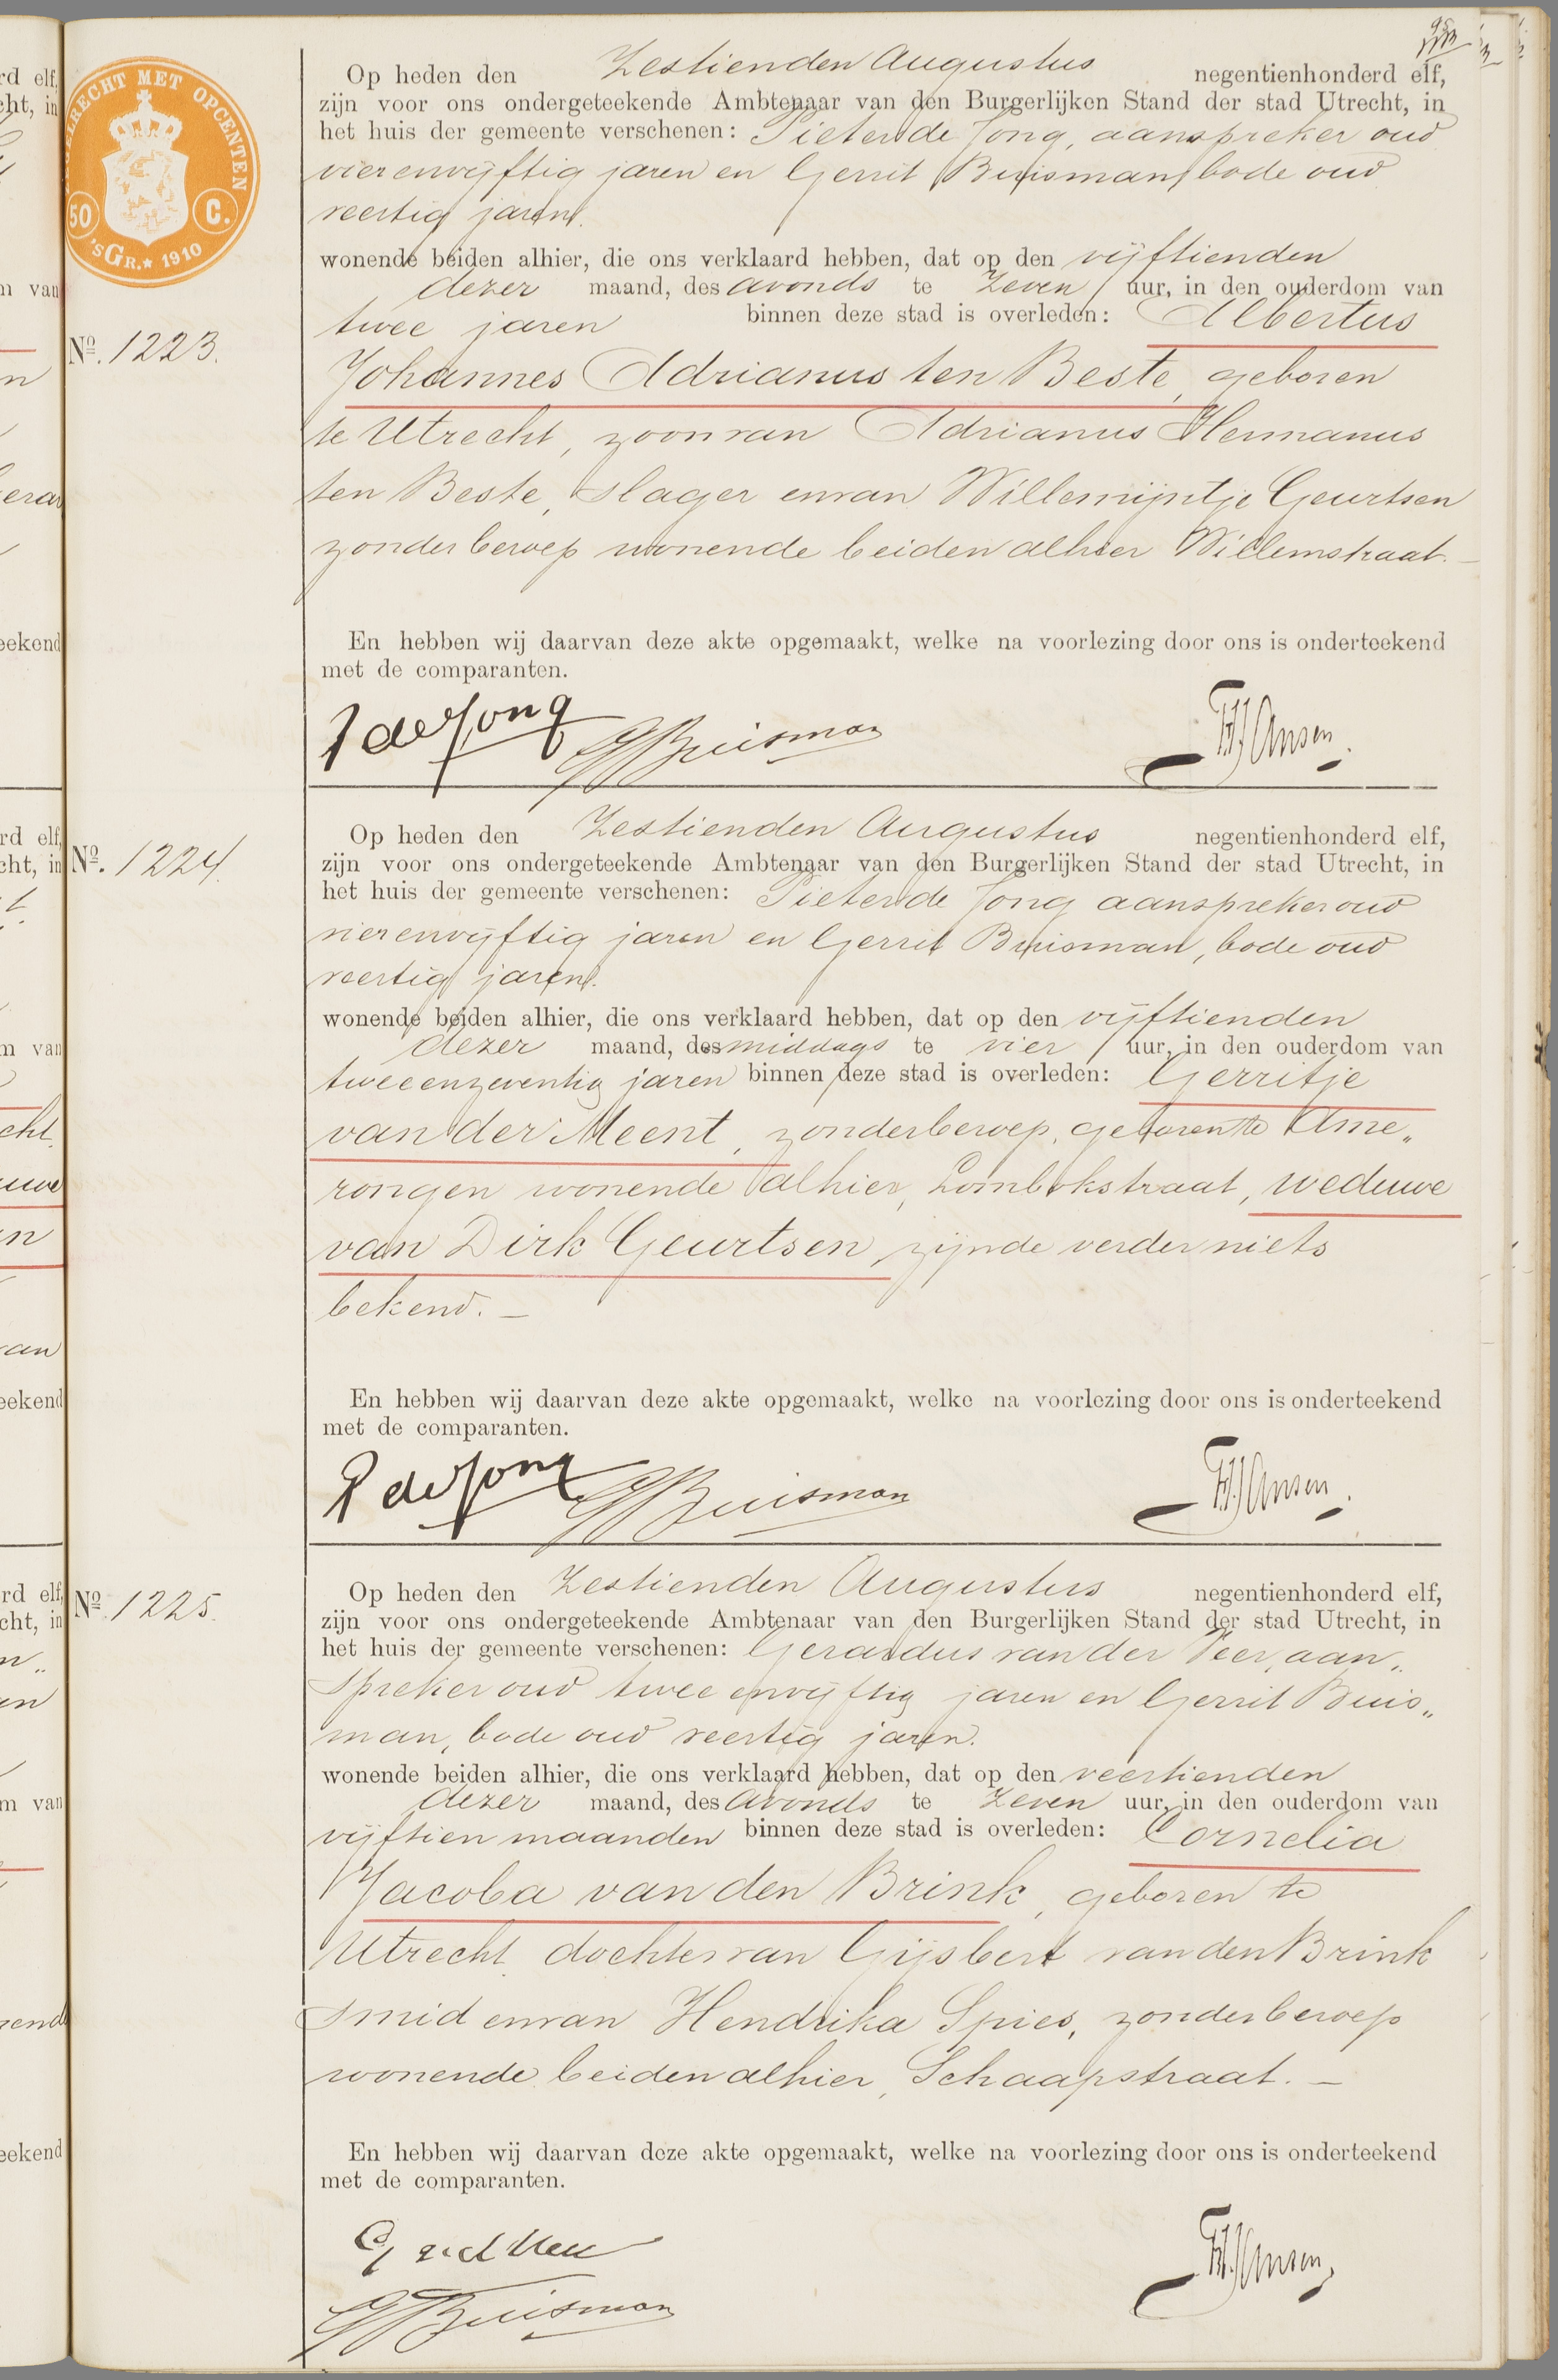 ZEGELRECHT MET OPCENTEN
50 C.
'sGR. ★ 1910
Op heden den Zestienden Augustus negentienhonderd elf,
zijn voor ons ondergeteekende Ambtenaar van den Burgerlijken Stand der stad Utrecht, in
het huis der gemeente verschenen: Pieter de Jong, aanspreker oud
vierenvijftig jaren en Gerrit Buisman, bode oud
veertig jaren.
wonende beiden alhier, die ons verklaard hebben, dat op den vijftienden
dezer maand, des avonds te zeven uur, in den ouderdom van
twee jaren binnen deze stad is overleden: Albertus
No. 1223.
Johannes Adrianus ten Beste, geboren
te Utrecht, zoon van Adrianus Hermanus
ten Beste, slager en van Willemijntje Geurtsen
zonder beroep wonende beiden alhier Willemstraat. –
En hebben wij daarvan deze akte opgemaakt, welke na voorlezing door ons is onderteekend
met de comparanten.
P de Jong GBuisman
Op heden den Zestienden Augustus negentienhonderd elf,
No. 1224.
zijn voor ons ondergeteekende Ambtenaar van den Burgerlijken Stand der stad Utrecht, in
het huis der gemeente verschenen: Pieter de Jong aanspreker oud
vierenvijftig jaren en Gerrit Buisman, bode oud
veertig jaren.
wonende beiden alhier, die ons verklaard hebben, dat op den vijftienden
dezer maand, des middags te vier uur, in den ouderdom van
tweeenzeventig jaren binnen deze stad is overleden: Gerritje
van der Meent, zonder beroep, geboren te Ame„
rongen wonende alhier, Lombokstraat, weduwe
van Dirk Geurtsen, zijnde verder niets
bekend. –
En hebben wij daarvan deze akte opgemaakt, welke na voorlezing door ons is onderteekend
met de comparanten.
P de Jong GBuisman
Op heden den Zestienden Augustus negentienhonderd elf,
No. 1225.
zijn voor ons ondergeteekende Ambtenaar van den Burgerlijken Stand der stad Utrecht, in
het huis der gemeente verschenen: Gerardus van der Veer, aan„
spreker oud twee envijftig jaren en Gerrit Buis„
man, bode oud veertig jaren.
wonende beiden alhier, die ons verklaard hebben, dat op den veertienden
dezer maand, des avonds te zeven uur, in den ouderdom van
vijftien maanden binnen deze stad is overleden: Cornelia
Jacoba van den Brink, geboren te
Utrecht dochter van Gijsbert van den Brink
smid en van Hendrika Spies, zonder beroep
wonende beiden alhier, Schaapstraat. –
En hebben wij daarvan deze akte opgemaakt, welke na voorlezing door ons is onderteekend
met de comparanten.
GBuisman